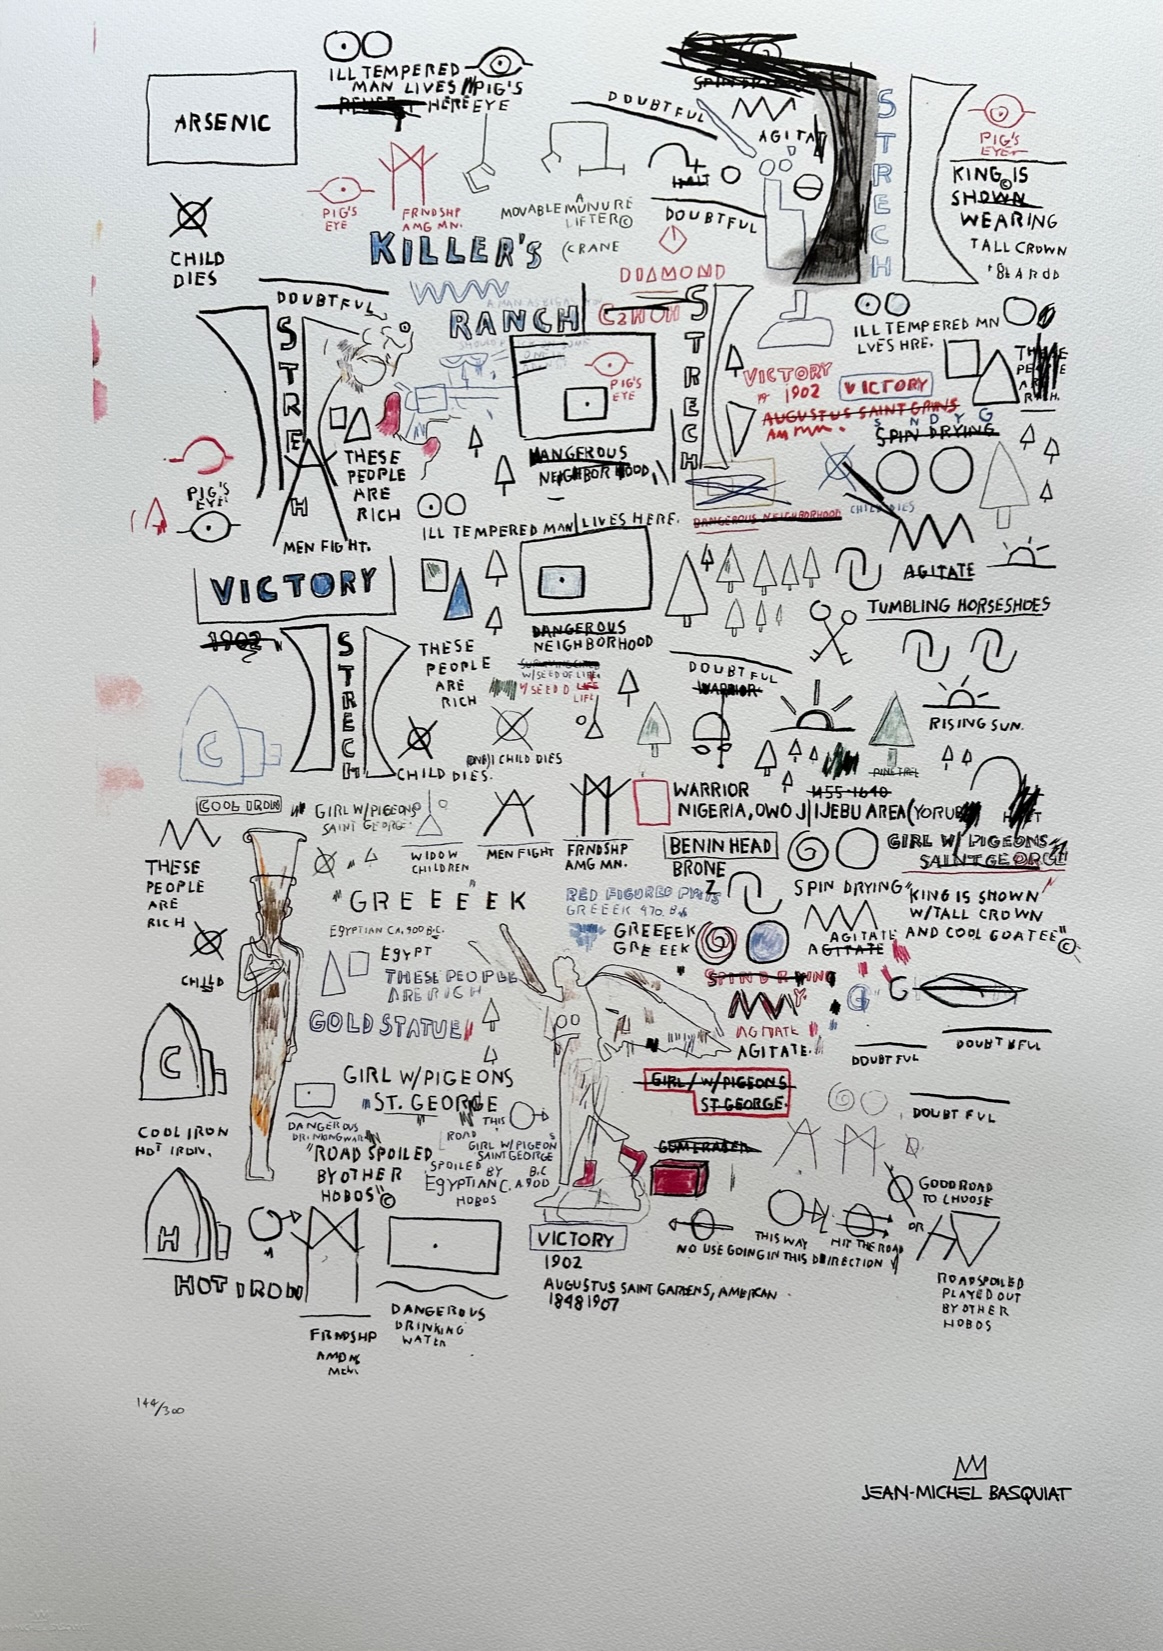 ILL TEMPERED
MAN LIVES
HERE
PIG'S
EYE
ARSENIC
DOUBTFUL
AGITAT
STRECH
PIG'S
EYE
KING © IS
SHOWN
WEARING
TALL CROWN
PIG'S
EYE
FRNDSHP
AMG MN.
A
MOVABLE MUNURE
LIFTER ©
(CRANE
HALT
DOUBTFUL
CHILD
DIES
KILLER'S
DIAMOND
DOUBTFUL
RANCH
C2HOH
STRECH
STRECH
ILL TEMPERED MN
LVES HRE.
PIG'S
EYE
VICTORY
1902
VICTORY
AUGUSTUS SAINT GRINS
SPIN DRYING
THESE
PEOPLE
ARE
RICH
DANGEROUS
NEIGHBORHOOD
PIG'S
EYE
H
MEN FIGHT.
ILL TEMPERED MAN LIVES HERE.
DANGEROUS NEIGHBORHOOD
CHILD DIES
VICTORY
AGITATE
TUMBLING HORSESHOES
1902
STRECH
THESE
PEOPLE
ARE
RICH
DANGEROUS
NEIGHBORHOOD
W/SEED OF LIFE.
DOUBTFUL
WARRIOR
RISING SUN.
C
CHILD DIES.
CHILD DIES
COOL IRON
GIRL W/PIGEONS
SAINT GEORGE.
WIDOW
CHILDREN
MEN FIGHT
FRNDSHP
AMG MN.
WARRIOR
NIGERIA, OWO J|IJEBU AREA (YORUB
1455-1640
BENIN HEAD
BRONE
Z
GIRL W/ PIGEONS
SAINT GEORGE
THESE
PEOPLE
ARE
RICH
"GREEEEK
RED FIGURED
GREEEK 470. B.
SPIN DRYING
"KING IS SHOWN
W/TALL CROWN
AND COOL GOATEE" ©
EGYPTIAN CA. 900 B.C.
GREEEEK
GREEEK
AGITATE
AGITATE
EGYPT
THESE PEOPLE
ARE RICH
CHILD
SPIN DRYING
GOLD STATUE
AGITATE
AGITATE.
G
G
DOUBTFUL
DOUBTFUL
C
COOL IRON
HOT IRON.
GIRL W/PIGEONS
ST. GEORGE
GIRL W/PIGEONS
ST GEORGE.
DOUBTFUL
DANGEROUS
THIS
ROAD
"ROAD SPOILED
BY OTHER
HOBOS" ©
GIRL W/PIGEONS
SAINT GEORGE
SPOILED BY
B.C
EGYPTIAN C. A 900
HOBOS
GUM ERASER
GOOD ROAD
TO CHOOSE
OR
H
HOT IRON
VICTORY
1902
AUGUSTUS SAINT GARDENS, AMERICAN
1848 1907
THIS WAY
HIT THE ROAD
NO USE GOING IN THIS DIRECTION
FRNDSHP
AMON
MEN
DANGEROUS
DRINKING
WATER
ROAD SPOILED
PLAYED OUT
BY OTHER
HOBOS
144/300
JEAN-MICHEL BASQUIAT